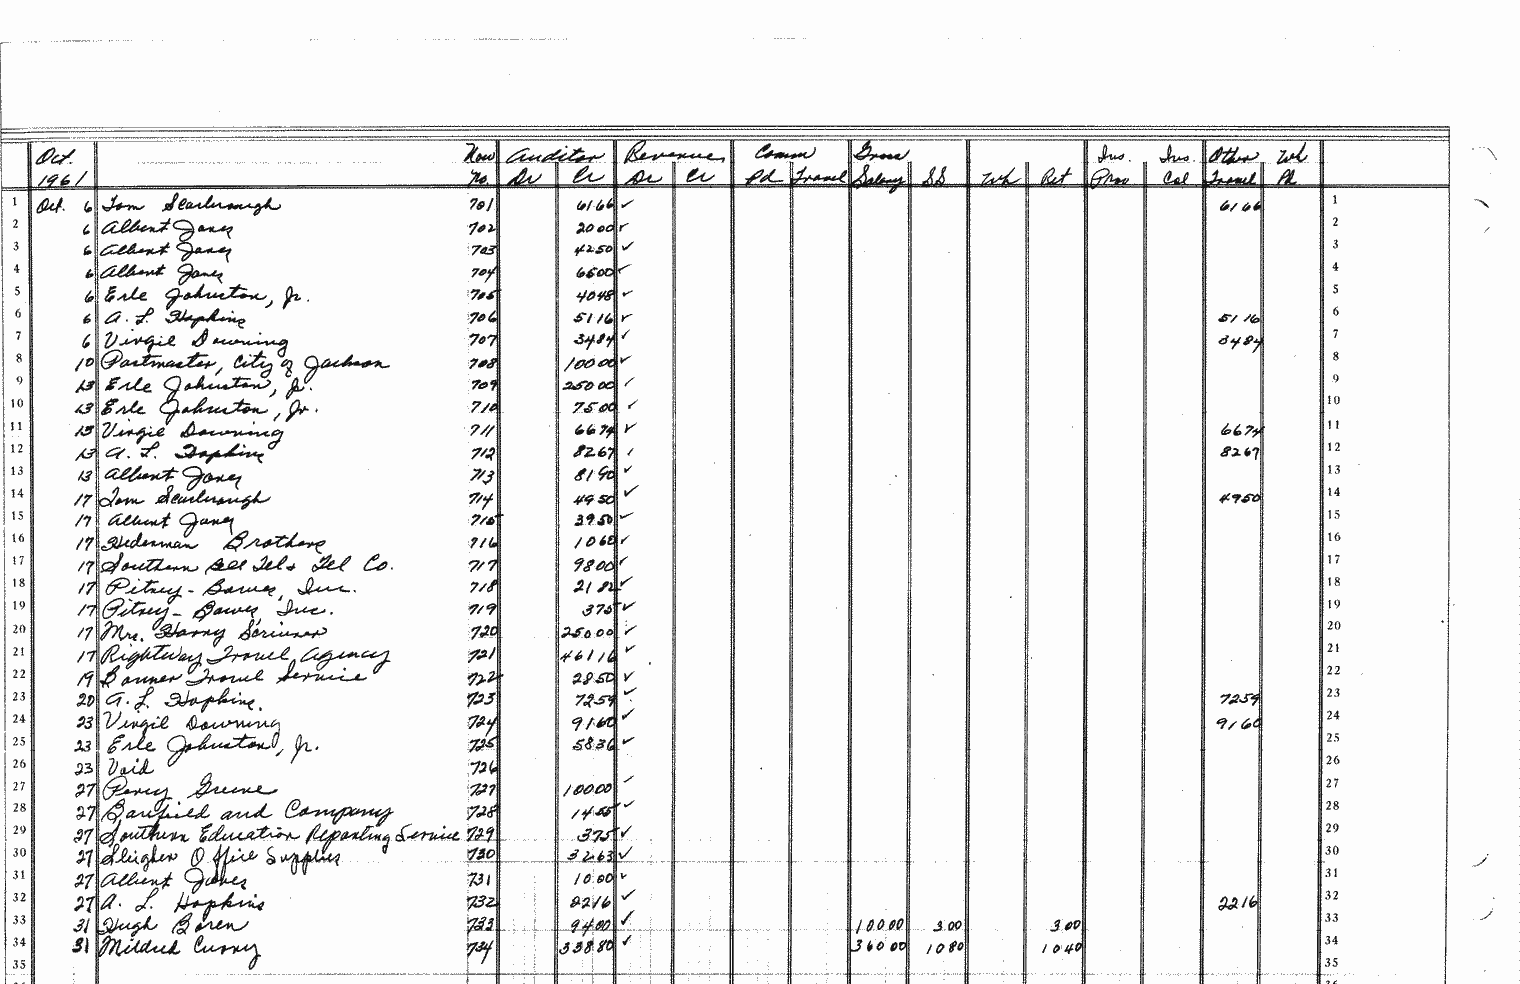 Oct. Now Auditor Revenue Comm Gross Ins. Ins. Other Wh
1961 No. Dr Cr Dr Cr Pd Travel Salary SS Wh Ret Prov Col Travel Pd
1 Oct. 6 Tom Scarbrough 701 61 66 ✓ 61 66 1
2 6 Albert Jones 702 20 00 ✓ 2
3 6 Albert Jones 703 42 50 ✓ 3
4 6 Albert Jones 704 65 00 ✓ 4
5 6 Erle Johnston, Jr. 705 40 48 ✓ 5
6 6 A. L. Hopkins 706 51 16 ✓ 51 16 6
7 6 Virgil Downing 707 34 84 ✓ 34 84 7
8 10 Postmaster, City of Jackson 708 100 00 ✓ 8
9 13 Erle Johnston, Jr. 709 250 00 ✓ 9
10 13 Erle Johnston, Jr. 710 75 00 ✓ 10
11 13 Virgil Downing 711 66 74 ✓ 66 74 11
12 13 A. L. Hopkins 712 82 67 ✓ 82 67 12
13 13 Albert Jones 713 81 90 ✓ 13
14 17 Tom Scarbrough 714 49 50 ✓ 49 50 14
15 17 Albert Jones 715 39 50 ✓ 15
16 17 Hederman Brothers 716 10 60 ✓ 16
17 17 Southern Bell Tel & Tel Co. 717 98 00 ✓ 17
18 17 Pitney-Bowes, Inc. 718 21 82 ✓ 18
19 17 Pitney-Bowes, Inc. 719 3 75 ✓ 19
20 17 Mrs. Harry Scrivner 720 250 00 ✓ 20
21 17 Rightway Travel Agency 721 461 16 ✓ 21
22 19 Bonner Travel Service 722 28 50 ✓ 22
23 20 A. L. Hopkins. 723 72 59 ✓ 72 59 23
24 23 Virgil Downing 724 91 60 ✓ 91 60 24
25 23 Erle Johnston, Jr. 725 58 36 ✓ 25
26 23 Void 726 26
27 27 Percy Greene 727 100 00 ✓ 27
28 27 Barfield and Company 728 14 55 ✓ 28
29 27 Southern Education Reporting Service 729 3 75 ✓ 29
30 27 Office Supplies 730 32 63 ✓ 30
31 27 Albert Jones 731 10 00 ✓ 31
32 27 A. L. Hopkins 732 22 16 ✓ 22 16 32
33 31 Hugh Boren 733 94 00 ✓ 100 00 3 00 3 00 33
34 31 Mildred Curry 734 338 80 ✓ 360 00 10 80 10 40 34
35 35